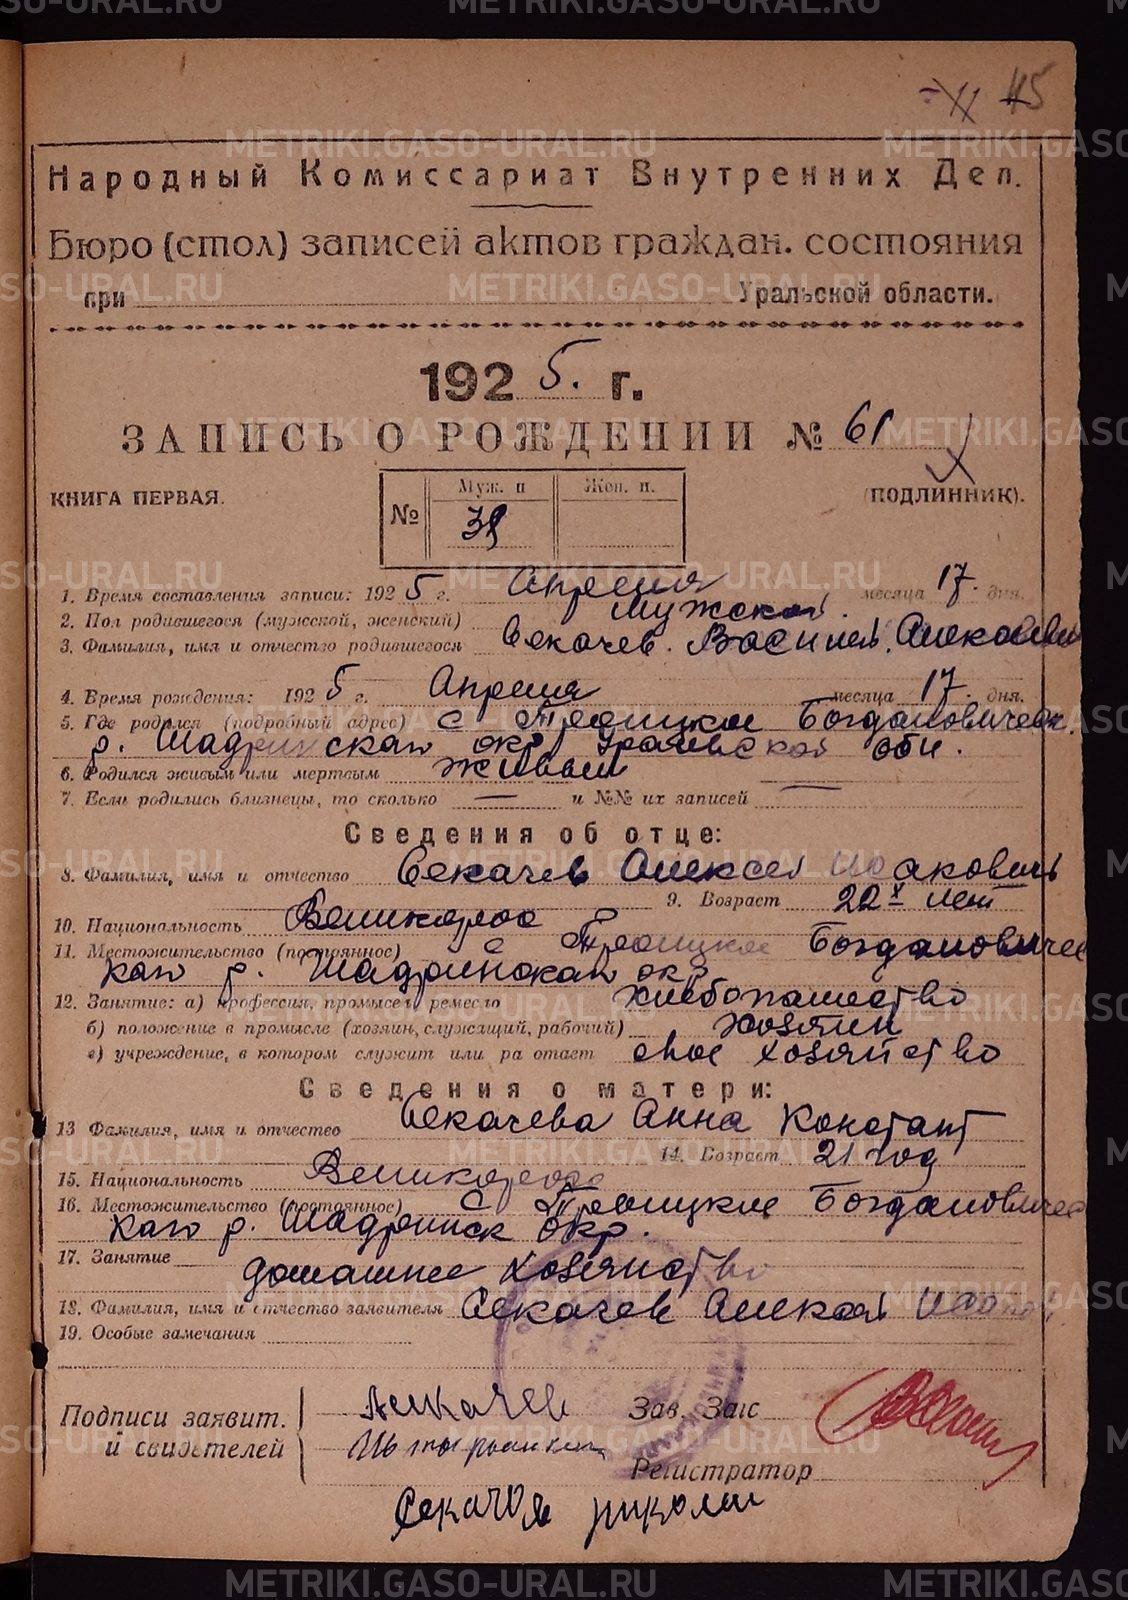 115
Народный Комиссариат Внутренних Дел.
Бюро (стол) записей актов граждан. состояния
при Уральской области.
1925. г.
ЗАПИСЬ О РОЖДЕНИИ № 61
КНИГА ПЕРВАЯ. (ПОДЛИННИК).
№ Муж. п Жен. п.
1. Время составления записи: 1925 г. Апреля месяца 17. дня.
2. Пол родившегося (мужской, женский) Мужской.
3. Фамилия, имя и отчество родившегося Секачев. Василий. Алексеевич
4. Время рождения: 1925 г. Апреля месяца 17. дня.
5. Где родился (подробный адрес) с Троицкое Богдановическ.
р. Шадринскаго окр Уральской обл.
6. Родился живым или мертвым живым
7. Если родились близнецы, то сколько — и №№ их записей —
Сведения об отце:
8. Фамилия, имя и отчество Секачев Алексей Исакович
9. Возраст 22х лет
10. Национальность Великоросс
11. Местожительство (постоянное) с Троицкое Богдановичес
каго р. Шадринскаго окр
12. Занятие: а) профессия, промысел, ремесло хлебопашество
б) положение в промысле (хозяин, служащий, рабочий) хозяин
в) учреждение, в котором служит или работает свое хозяйство
Сведения о матери:
13 Фамилия, имя и отчество Секачева Анна Констант
14. Возраст 21 год
15. Национальность Великоросс
16. Местожительство (постоянное) с Троицкое Богдановичес
каго р. Шадринск окр.
17. Занятие домашнее хозяйство
18. Фамилия, имя и отчество заявителя Секачев Алексей
19. Особые замечания
Подписи заявит. Зав. Загс
и свидетелей
Регистратор